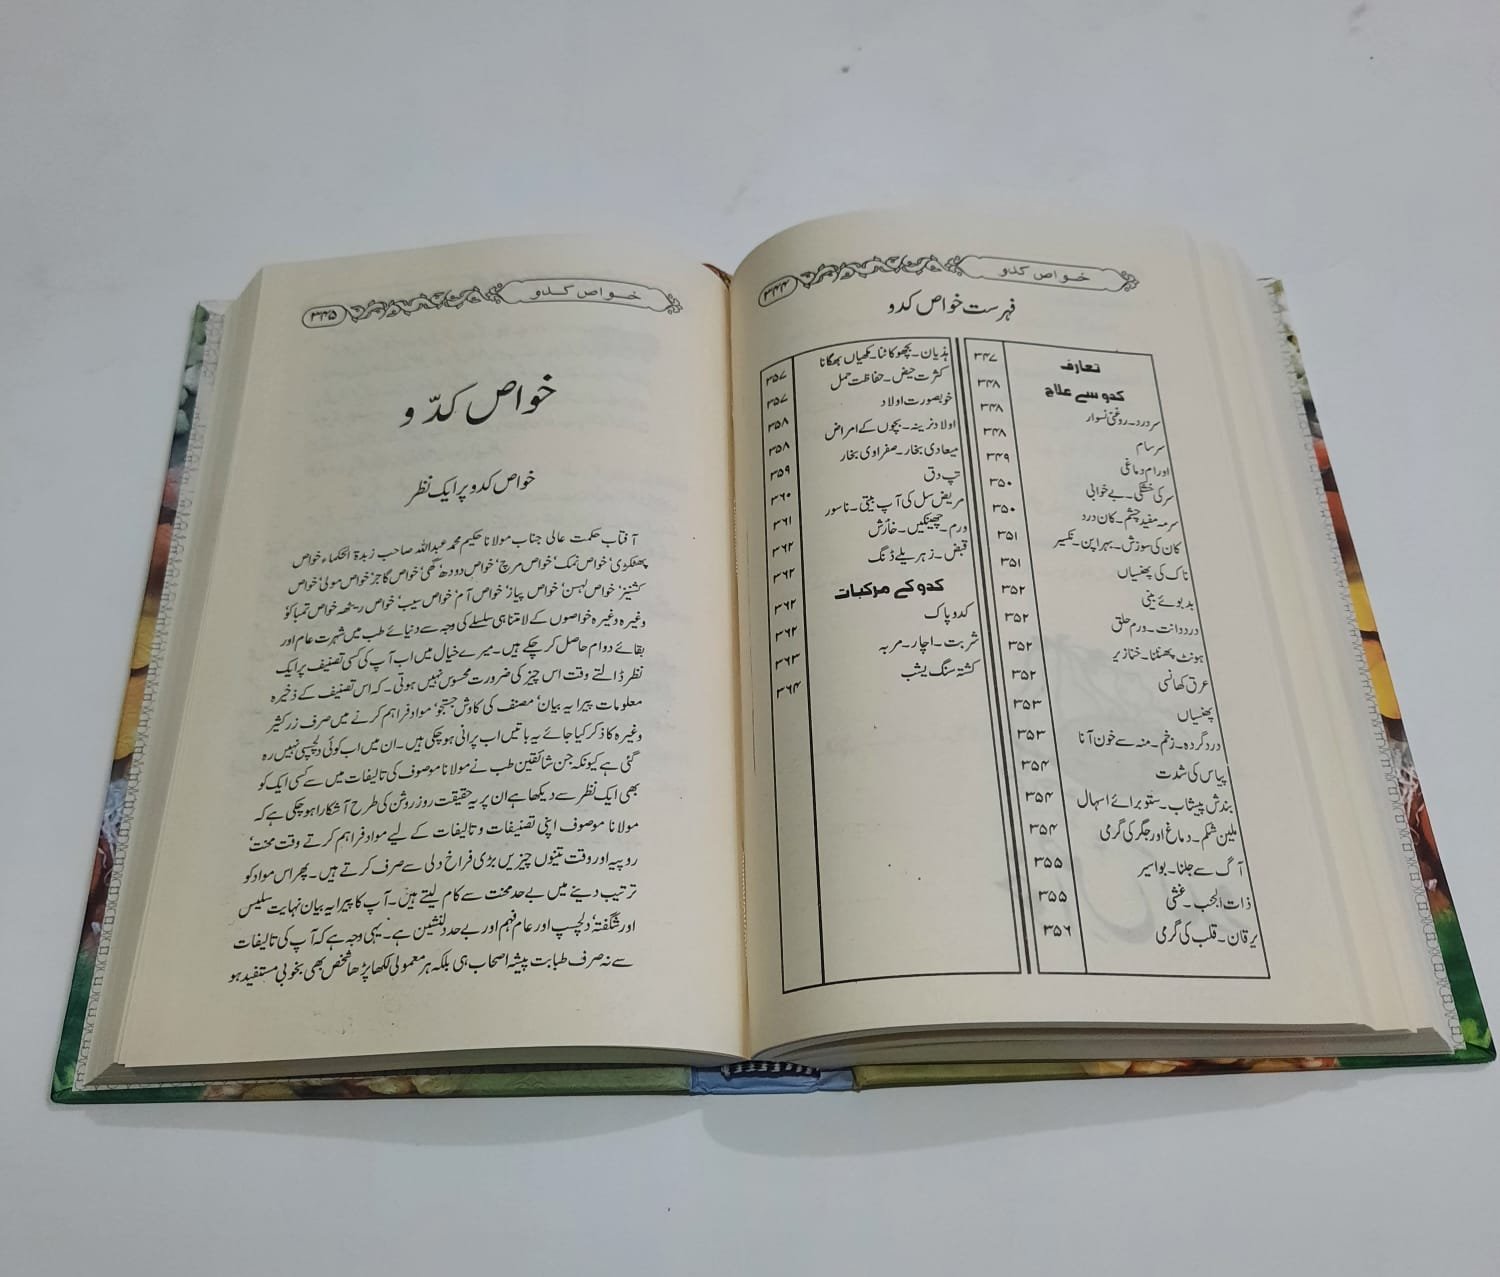 خواص کدو
۳۴۴
فہرست خواص کدو
تعارف ۳۴۷
کدو سے علاج ۳۴۸
سردرد۔روغنی نسوار ۳۴۸
سرسام ۳۴۸
اورام دماغی ۳۴۹
سر کی خشکی۔بے خوابی ۳۵۰
سرمہ مفید چشم۔کان درد ۳۵۰
کان کی سوزش۔بہراپن۔نکسیر ۳۵۱
ناک کی پھنسیاں ۳۵۱
بدبوئے بینی ۳۵۲
درد دانت۔ورم حلق ۳۵۲
ہونٹ پھٹنا۔خنازیر ۳۵۲
عرق کھانسی ۳۵۲
پھنسیاں ۳۵۳
درد گردہ۔زخم۔منہ سے خون آنا ۳۵۳
پیاس کی شدت ۳۵۴
بندش پیشاب۔ستو برائے اسہال ۳۵۴
ملین شکم۔دماغ اور جگر کی گرمی ۳۵۴
آگ سے جلنا۔بواسیر ۳۵۵
ذات الجنب۔غشی ۳۵۵
یرقان۔قلب کی گرمی ۳۵۶
ہذیان۔بچھو کاٹنا۔مکھیاں بھگانا ۳۵۷
کثرت حیض۔حفاظت حمل ۳۵۷
خوبصورت اولاد ۳۵۸
اولاد نرینہ۔بچوں کے امراض ۳۵۸
میعادی بخار۔صفراوی بخار ۳۵۹
تپ دق ۳۶۰
مریض سل کی آپ بیتی۔ناسور ۳۶۱
ورم۔چھینکیں۔خارش ۳۶۲
قبض۔زہریلے ڈنگ ۳۶۲
کدو کے مرکبات ۳۶۲
کدو پاک ۳۶۲
شربت۔اچار۔مربہ ۳۶۳
کشتہ سنگ یشب ۳۶۴
خواص کدو
۳۴۵
خواص کدّو
خواص کدو پر ایک نظر
آفتاب حکمت عالی جناب مولانا حکیم محمد عبداللہ صاحب زبدۃ الحکماء خواص
پھٹکڑی' خواص نمک' خواص مرچ' خواص دودھ' گھی' خواص گاجر' خواص مولی' خواص
کشنیز' خواص لہسن' خواص پیاز' خواص آم' خواص سیب' خواص ریٹھہ' خواص تمباکو'
وغیرہ وغیرہ خواصوں کے لامتناہی سلسلے کی وجہ سے دنیائے طب میں شہرت عام اور
بقائے دوام حاصل کر چکے ہیں۔میرے خیال میں اب آپ کی کسی تصنیف پر ایک
نظر ڈالتے وقت اس چیز کی ضرورت محسوس نہیں ہوتی۔کہ اس تصنیف کے ذخیرہ
معلومات پیرایہ بیان' مصنف کی کاوش جستجو' مواد فراہم کرنے میں صرف زر کثیر
وغیرہ کا ذکر کیا جائے یہ باتیں اب پرانی ہو چکی ہیں۔ان میں اب کوئی دلچسپی نہیں رہ
گئی ہے کیونکہ جن شائقین طب نے مولانا موصوف کی تالیفات میں سے کسی ایک کو
بھی ایک نظر سے دیکھا ہے ان پر یہ حقیقت روز روشن کی طرح آشکارا ہو چکی ہے کہ
مولانا موصوف اپنی تصنیفات و تالیفات کے لیے مواد فراہم کرتے وقت محنت'
روپیہ اور وقت تینوں چیزیں بڑی فراخ دلی سے صرف کرتے ہیں۔پھر اس مواد کو
ترتیب دینے میں بے حد محنت سے کام لیتے ہیں۔آپ کا پیرایہ بیان نہایت سلیس
اور شگفتہ' دلچسپ اور عام فہم اور بے حد دلنشین ہے۔یہی وجہ ہے کہ آپ کی تالیفات
سے نہ صرف طبابت پیشہ اصحاب ہی بلکہ ہر معمولی لکھا پڑھا شخص بھی بخوبی مستفید ہو